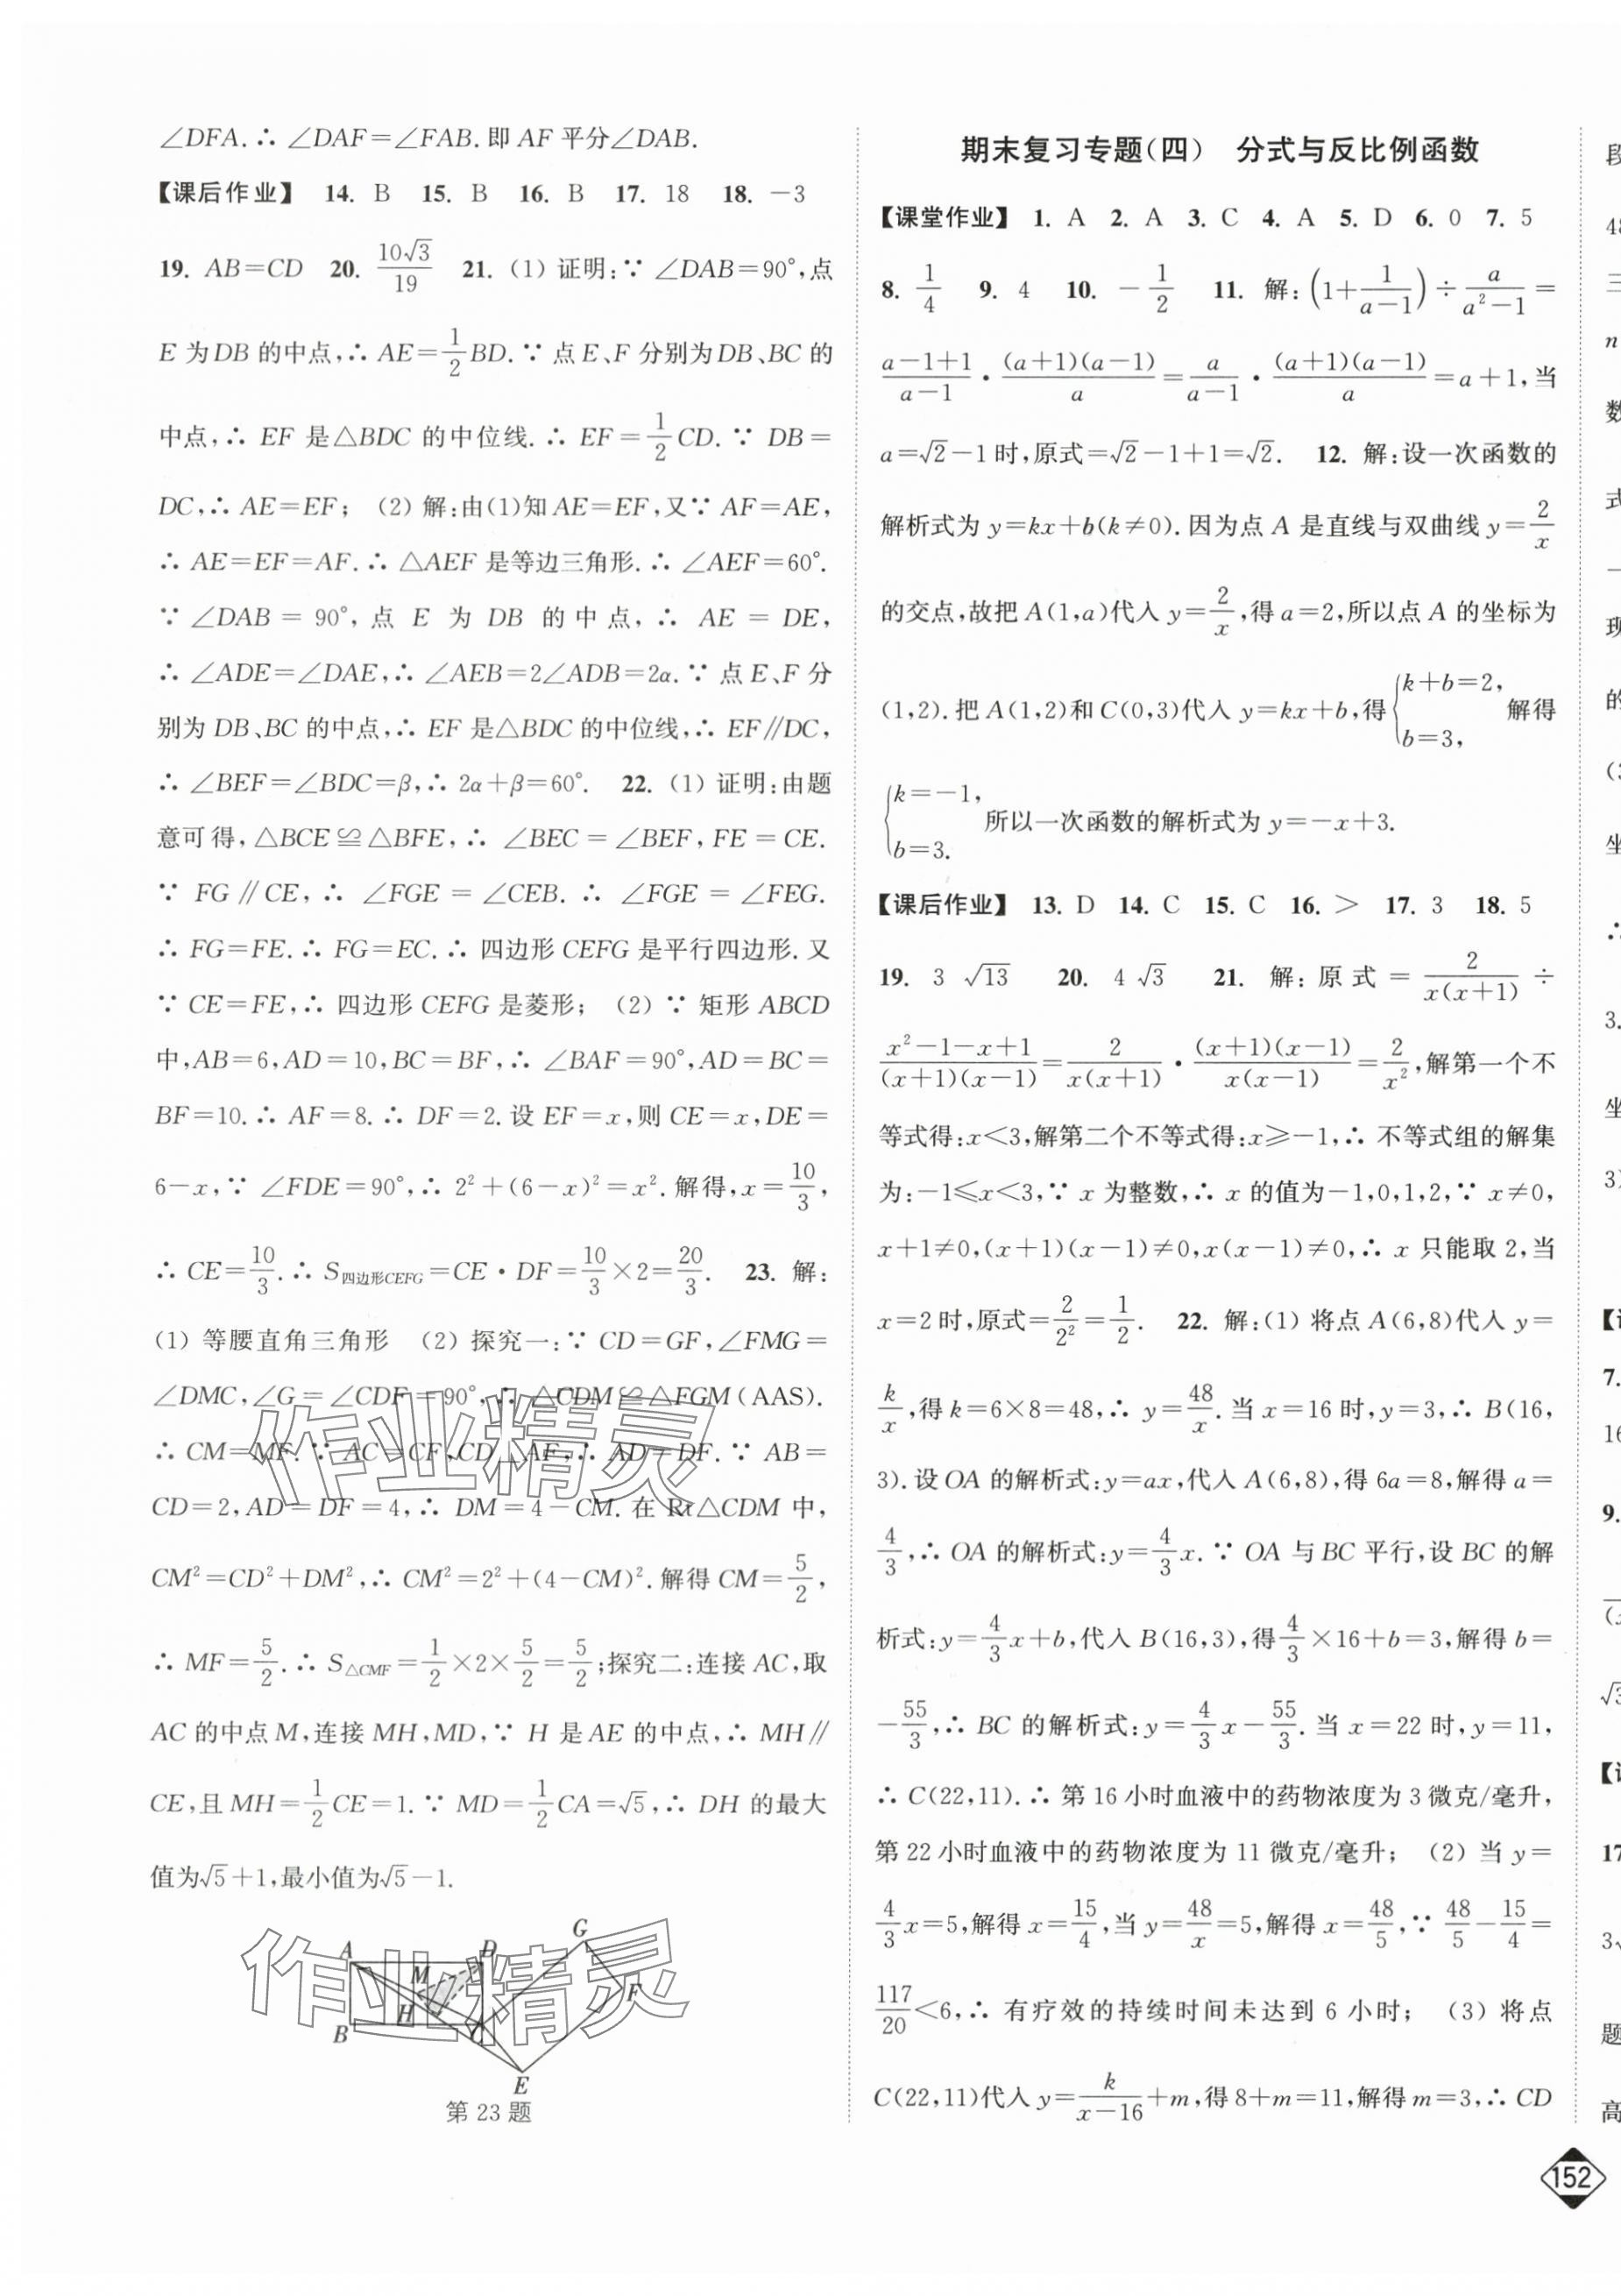 ∠DFA.∴ ∠DAF=∠FAB.即 AF 平分∠DAB.
【课后作业】 14. B 15. B 16. B 17. 18 18. −3
19. AB=CD 20. 10√3/19 21. (1) 证明:∵ ∠DAB=90°,点
E 为DB 的中点,∴ AE=1/2BD.∵ 点E、F 分别为DB、BC 的
中点,∴ EF 是△BDC 的中位线.∴ EF=1/2CD.∵ DB=
DC,∴ AE=EF; (2) 解:由(1)知AE=EF,又∵ AF=AE,
∴ AE=EF=AF.∴ △AEF 是等边三角形.∴ ∠AEF=60°.
∵ ∠DAB = 90°,点 E 为 DB 的中点,∴ AE = DE,
∴ ∠ADE=∠DAE,∴ ∠AEB=2∠ADB=2α.∵ 点E、F 分
别为 DB、BC 的中点,∴ EF 是△BDC 的中位线,∴ EF∥DC,
∴ ∠BEF=∠BDC=β,∴ 2α+β=60°. 22. (1) 证明:由题
意可得,△BCE≌△BFE,∴ ∠BEC=∠BEF,FE=CE.
∵ FG∥CE,∴ ∠FGE = ∠CEB.∴ ∠FGE = ∠FEG.
∴ FG=FE.∴ FG=EC.∴ 四边形CEFG 是平行四边形.又
∵ CE=FE,∴ 四边形CEFG 是菱形; (2) ∵ 矩形 ABCD
中,AB=6,AD=10,BC=BF,∴ ∠BAF=90°,AD=BC=
BF=10.∴ AF=8.∴ DF=2.设 EF=x,则 CE=x,DE=
6−x,∵ ∠FDE=90°,∴ 2²+(6−x)²=x².解得,x=10/3,
∴ CE=10/3.∴ S四边形CEFG=CE·DF=10/3×2=20/3. 23. 解:
(1) 等腰直角三角形 (2) 探究一:∵ CD=GF,∠FMG=
∠DMC,∠G=∠CDF=90°,∴ △CDM≌△FGM(AAS).
∴ CM=MF.∵ AC=CF,CD⊥AF,∴ AD=DF.∵ AB=
CD=2,AD=DF=4,∴ DM=4−CM.在 Rt△CDM 中,
CM²=CD²+DM²,∴ CM²=2²+(4−CM)².解得 CM=5/2,
∴ MF=5/2.∴ S△CMF=1/2×2×5/2=5/2;探究二:连接 AC,取
AC 的中点M,连接 MH,MD,∵ H 是 AE 的中点,∴ MH∥
CE,且MH=1/2CE=1.∵ MD=1/2CA=√5,∴ DH 的最大
值为√5+1,最小值为√5−1.
作业精灵
作业精灵
A
D
G
M
F
H
B
C
E
第 23 题
期末复习专题(四) 分式与反比例函数
【课堂作业】 1. A 2. A 3. C 4. A 5. D 6. 0 7. 5
8. 1/4 9. 4 10. −1/2 11. 解:(1+1/(a−1))÷a/(a²−1)=
(a−1+1)/(a−1)·(a+1)(a−1)/a=a/(a−1)·(a+1)(a−1)/a=a+1,当
a=√2−1时,原式=√2−1+1=√2. 12. 解:设一次函数的
解析式为 y=kx+b(k≠0).因为点 A 是直线与双曲线 y=2/x
的交点,故把A(1,a)代入 y=2/x,得a=2,所以点 A 的坐标为
(1,2).把A(1,2)和C(0,3)代入 y=kx+b,得{k+b=2, b=3, 解得
{k=−1, b=3. 所以一次函数的解析式为 y=−x+3.
【课后作业】 13. D 14. C 15. C 16. > 17. 3 18. 5
19. 3 √13 20. 4√3 21. 解:原式=2/(x(x+1))÷
(x²−1−x+1)/((x+1)(x−1))=2/(x(x+1))·(x+1)(x−1)/(x(x−1))=2/x²,解第一个不
等式得:x<3,解第二个不等式得:x≥−1,∴ 不等式组的解集
为:−1≤x<3,∵ x 为整数,∴ x 的值为−1,0,1,2,∵ x≠0,
x+1≠0,(x+1)(x−1)≠0,x(x−1)≠0,∴ x 只能取 2,当
x=2时,原式=2/2²=1/2. 22. 解:(1) 将点A(6,8)代入 y=
k/x,得k=6×8=48,∴ y=48/x.当 x=16时,y=3,∴ B(16,
3).设OA 的解析式:y=ax,代入A(6,8),得 6a=8,解得 a=
4/3,∴ OA 的解析式:y=4/3x.∵ OA 与 BC 平行,设 BC 的解
析式:y=4/3x+b,代入B(16,3),得4/3×16+b=3,解得b=
−55/3,∴ BC 的解析式:y=4/3x−55/3.当 x=22 时,y=11,
∴ C(22,11).∴ 第 16 小时血液中的药物浓度为 3 微克/毫升,
第 22 小时血液中的药物浓度为 11 微克/毫升; (2) 当 y=
4/3x=5,解得 x=15/4,当y=48/x=5,解得 x=48/5,∵ 48/5−15/4=
117/20<6,∴ 有疗效的持续时间未达到 6 小时; (3) 将点
C(22,11)代入 y=k/(x−16)+m,得8+m=11,解得m=3,∴ CD
152